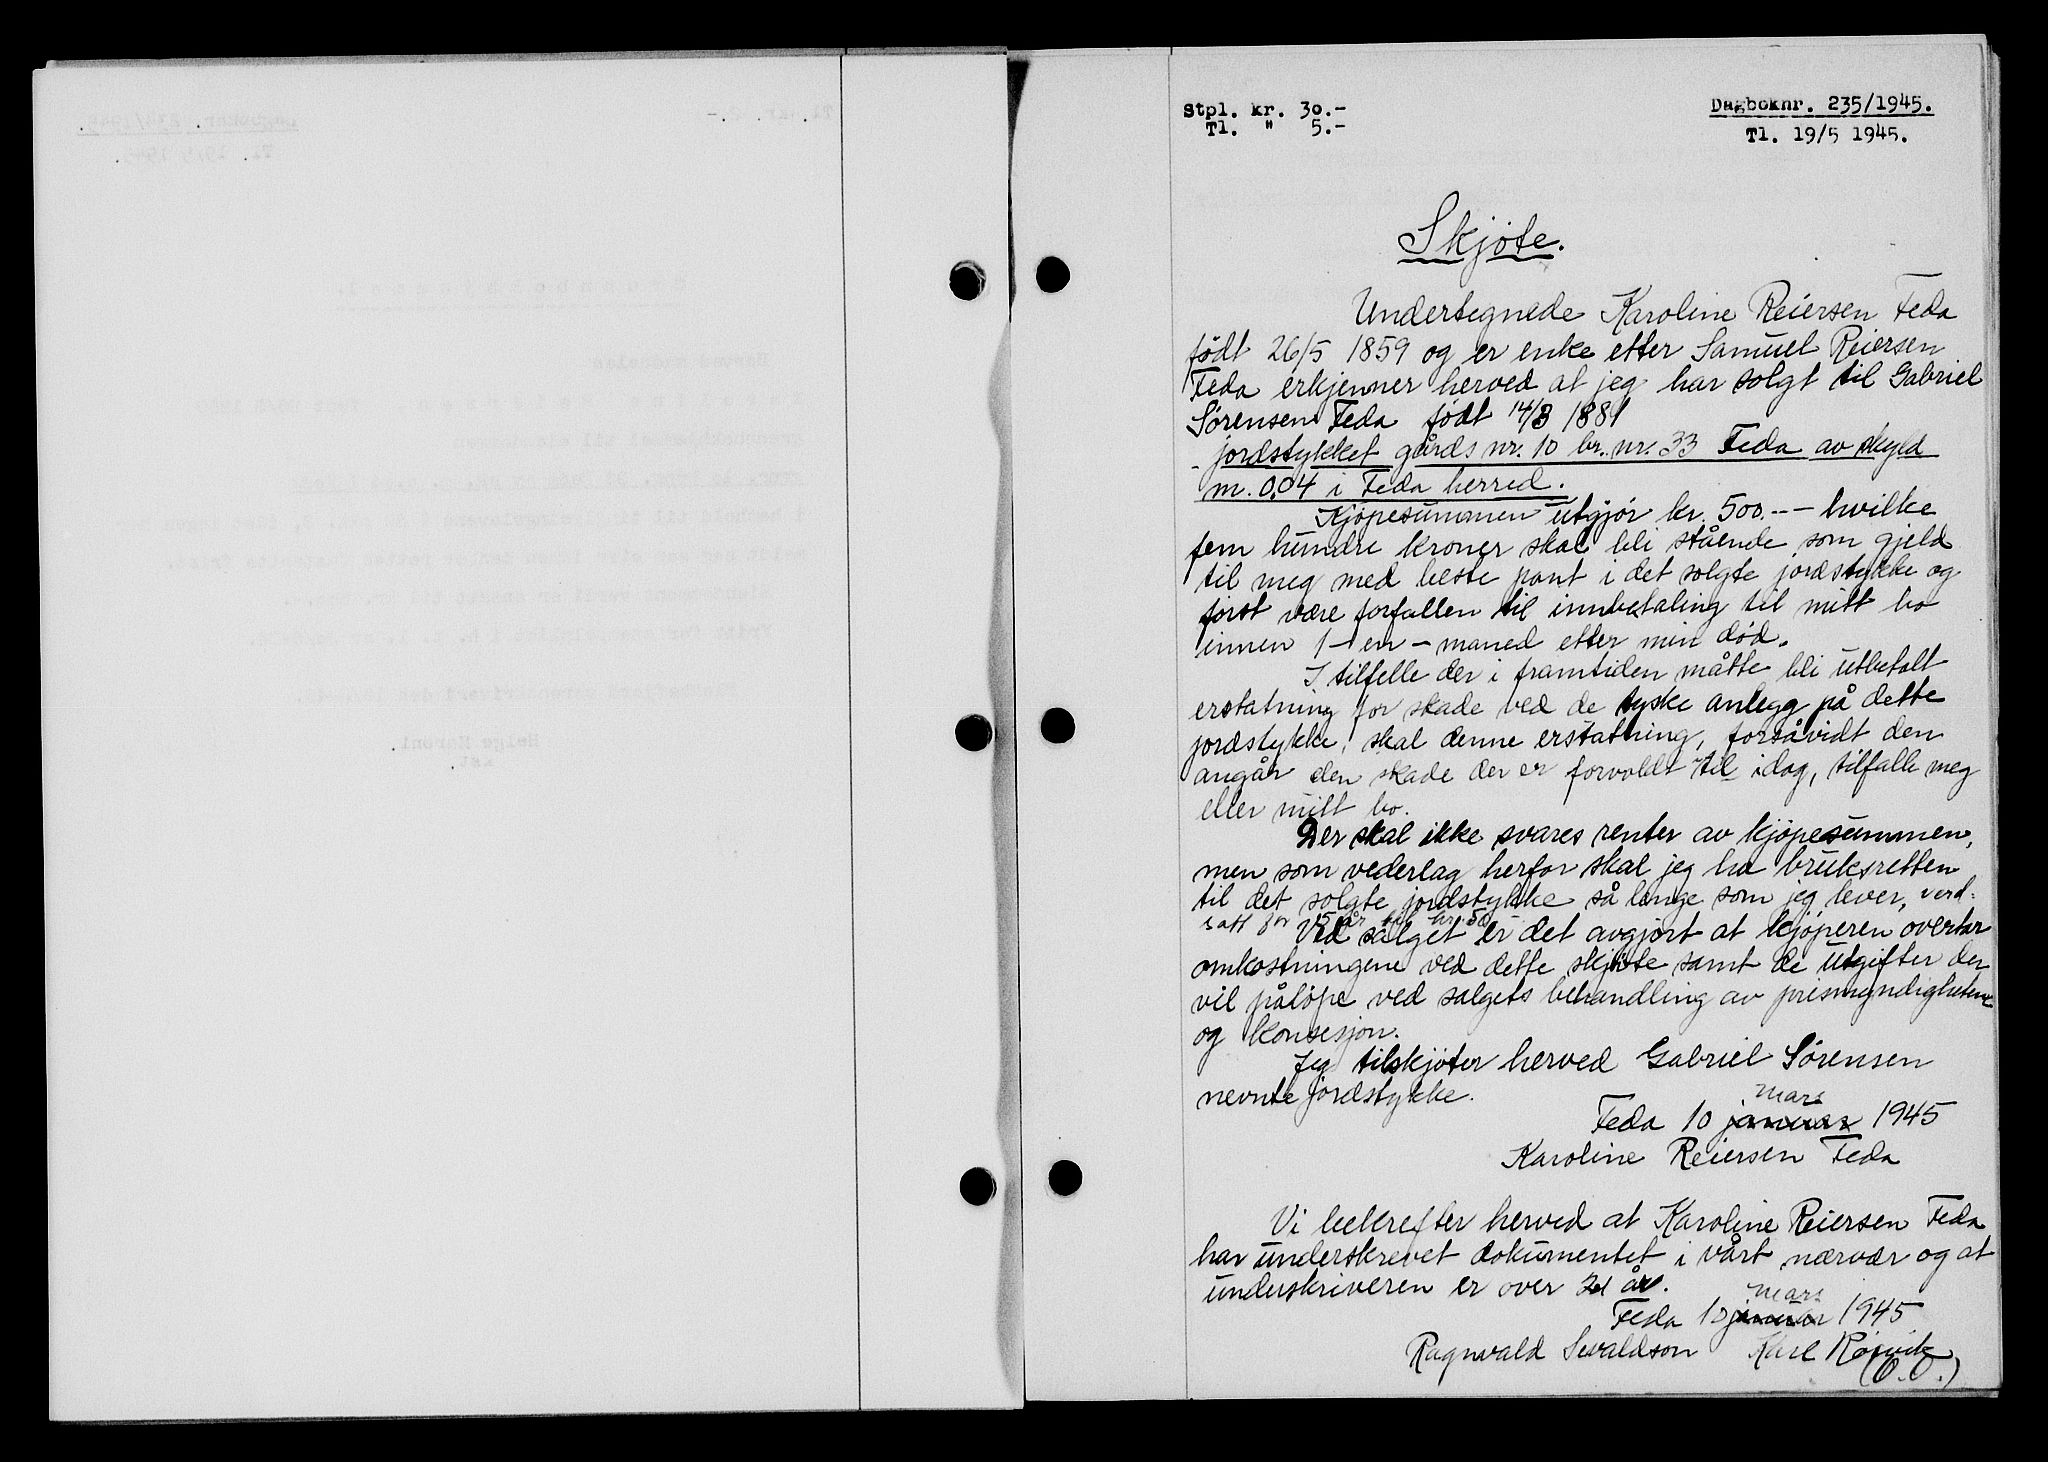 Stpl. kr. 30.-
Tl. " 5.-
Dagboknr. 235/1945.
Tl. 19/5 1945.
Skjøte.
Undertegnede Karoline Reiersen Feda
født 26/5 1859 og er enke etter Samuel Reiersen
Feda erkjenner herved at jeg har solgt til Gabriel
Sørensen Feda født 14/3 1881
jordstykket gårds nr. 10 br. nr. 33 Feda av skyld
m. 0.04 i Feda herred.
Kjøpesummen utgjør kr. 500.-- hvilke
fem hundre kroner skal bli stående som gjeld
til meg med beste pant i det solgte jordstykke og
først være forfallen til innbetaling til mitt bo
innen 1 - en - måned etter min død.
I tilfelle der i framtiden måtte bli utbetalt
erstatning for skade ved de tyske anlegg på dette
jordstykke, skal denne erstatning, forsåvidt den
angår den skade der er forvoldt til idag, tilfalle meg
eller mitt bo.
Der skal ikke svares renter av kjøpesummen,
men som vederlag herfor skal jeg ha bruksretten
til det solgte jordstykke så lenge som jeg lever, verd-
satt for 5 år til kr. 50
Ved salget er det avgjort at kjøperen overtar
omkostningene ved dette skjøte samt de utgifter der
vil påløpe ved salgets behandling av prismyndighetene
og konsesjon.
Jeg tilskjøter herved Gabriel Sørensen
nevnte jordstykke.
mars
Feda 10 januar 1945
Karoline Reiersen Feda
Vi bekrefter herved at Karoline Reiersen Feda
har underskrevet dokumentet i vårt nærvær og at
underskriveren er over 21 år.
mars
Feda 10 januar 1945
Ragnvald Sevaldson Karl Røisvik
(O.O.)